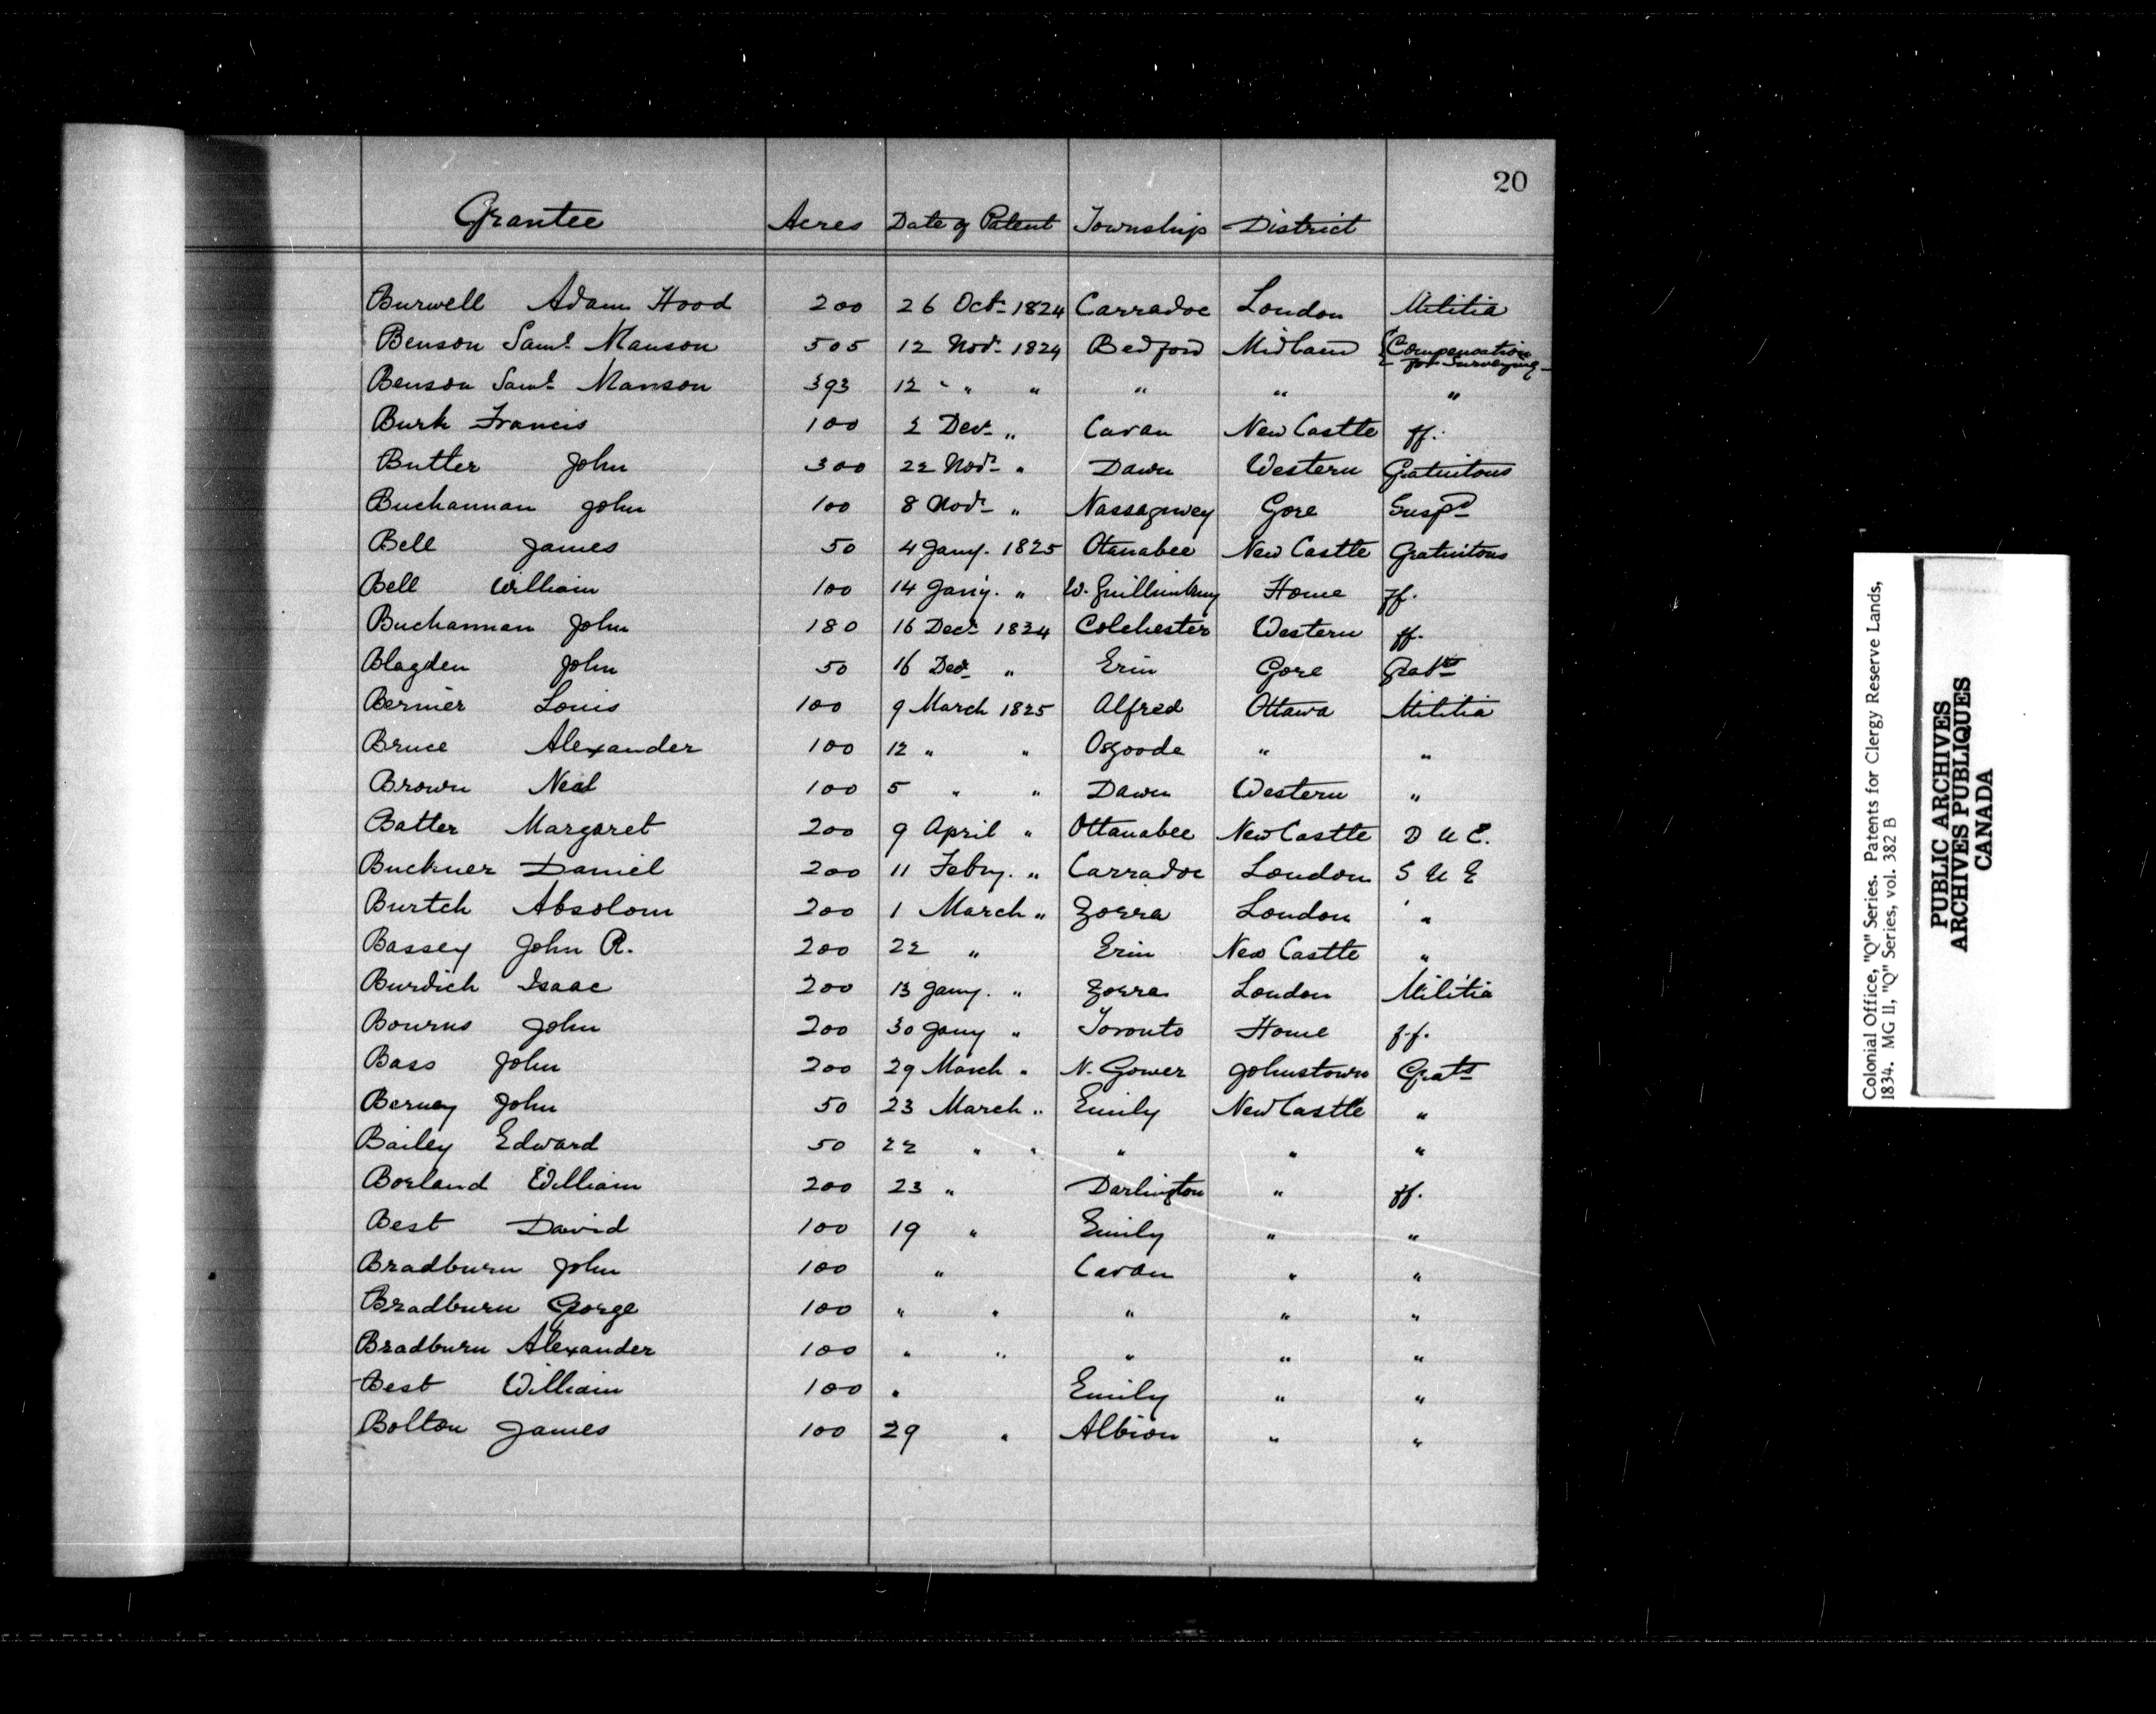 20
Grantee Acres Date of Patent Township District
Burwell Adam Hood 200 26 Oct 1824 Carradoc London Militia
Benson Saml Manson 505 12 Novr 1824 Bedford Midland { Compensation for Surveying
Benson Saml Manson 393 12 " " " " " "
Burk Francis 100 2 Decr " Cavan New Castle ff.
Butler John 300 22 Novr " Dawn Western Gratuitous
Buchannan John 100 8 Novr " Nassagiwey Gore Suspd
Bell James 50 4 Jany. 1825 Otanabee New Castle Gratuitous
Bell William 100 14 Jany. " W. Guillimbury Home ff.
Buchannan John 180 16 Decr 1824 Colchester Western ff.
Blagden John 50 16 Decr " Erin Gore Grats
Bernier Louis 100 9 March 1825 Alfred Ottawa Militia
Bruce Alexander 100 12 " " Osgoode " "
Brown Neal 100 5 " " Dawn Western "
Batter Margaret 200 9 April " Ottanabee New Castle D U E.
Buckner Daniel 200 11 Febry. " Carradoc London S U E
Burtch Absolom 200 1 March " Zorra London "
Bassey John R. 200 22 " Erin New Castle "
Burdich Isaac 200 13 Jany. " Zorra London Militia
Bourns John 200 30 Jany " Toronto Home f.f.
Bass John 200 29 March " N. Gower Johnstown Grats
Berney John 50 23 March " Emily New Castle "
Bailey Edward 50 22 " " " " "
Borland William 200 23 " Darlington " ff.
Best David 100 19 " Emily " "
Bradburn John 100 " Cavan " "
Bradburn George 100 " " " " "
Bradburn Alexander 100 " " " " "
Best William 100 " Emily " "
Bolton James 100 29 " Albion " "
Colonial Office, "Q" Series. Patents for Clergy Reserve Lands,
1834. MG 11, "Q" Series, vol. 382 B
PUBLIC ARCHIVES
ARCHIVES PUBLIQUES
CANADA